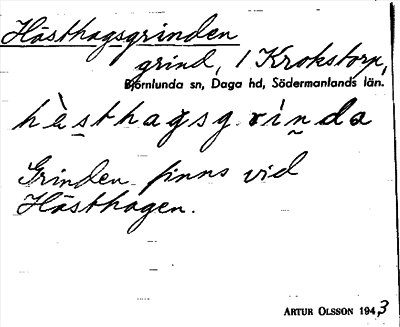 Hästhagsgrinden
grind, / Krokstorp,
Björnlunda sn, Daga hd, Södermanlands län.
hèsthagsgrinda
Grinden finns vid
Hästhagen.
ARTUR OLSSON 1943